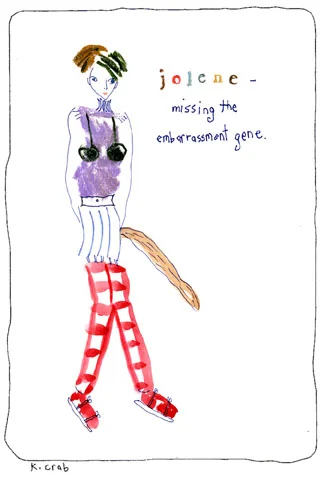 jolene -
missing the
embarrassment gene.
K. crab